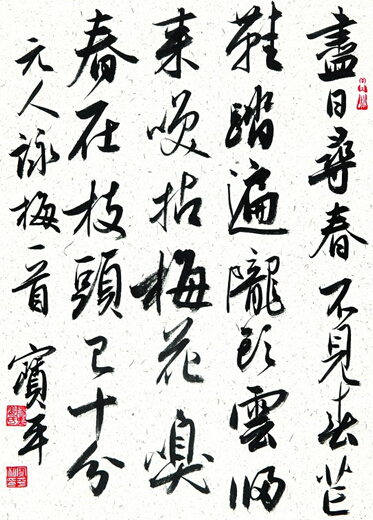 盡日尋春不見春芒
鞋踏遍隴頭雲歸
来咲拈梅花嗅
春在枝頭已十分
元人詠梅一首 寶平